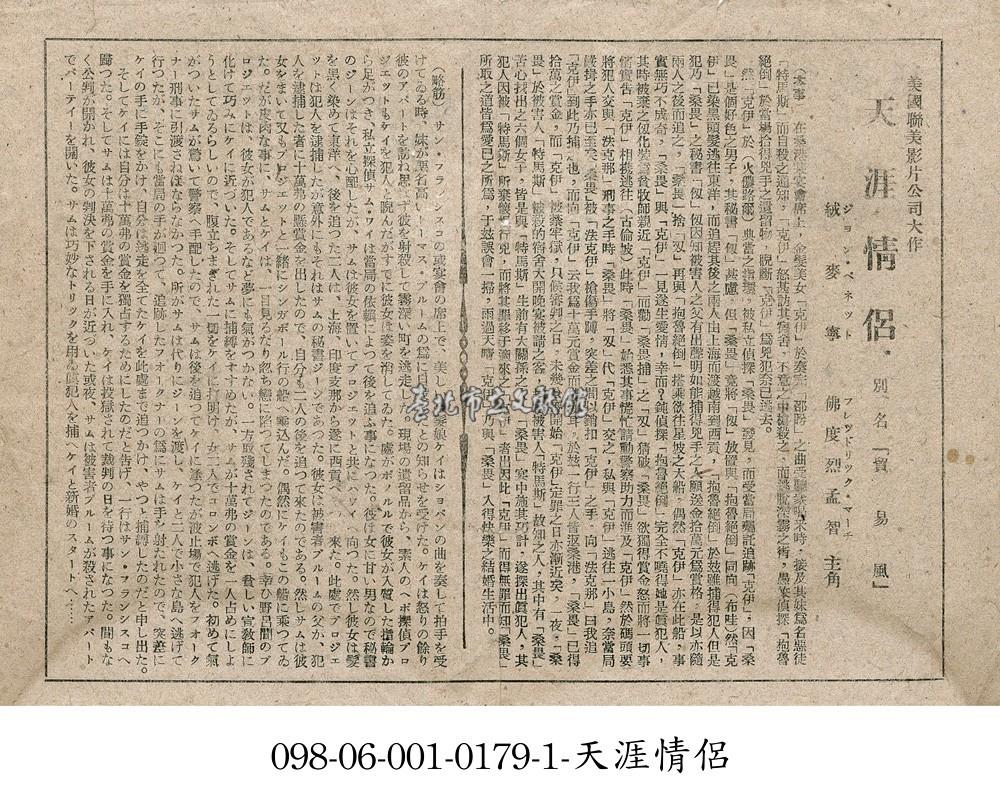 美國聯美影片公司大作
天涯情侶・別名「貿易風」
ジョン・ベネット フレッドリック・マーチ
絨麥寧 佛度烈孟智 主角
(本事) 在桑港某宴會席上、金髮美女「克伊」於奏完「邵盼」之曲受聽衆喝采時、接及其妹爲名惡徒
「特馬斯」而自殺之通知、「克伊」怒甚訪其宿舍、不意之中槍殺之、而逃脫深霧之街、愚朱偵探「抱魯
絕倒」於當場拾得兇手之遺留物、脫斷「克伊」爲兇犯奈已逃去。
然「克伊」於(火儂路爾)典當之指環、被私立偵探「桑畏」發見、而受當局囑託追跡「克伊」、因「桑
畏」是個好色之男子、其秘書「伮」甚慮、但「桑畏」竟將「伮」放置與「抱魯絕倒」同向(布哇)然「克
伊」已染黑頭髮逃往東洋、而追踪其後之兩人由上海而渡越南到西貢、「抱魯絕倒」於玆雖捕得犯人但是
犯乃「桑畏」之秘書「伮」、伮因知被害人之父有出聲明如能捕得兇手之人願送金拾萬元爲賞格、是以亦隨
兩人之後而追之、「桑畏」捨「伮」再與「抱魯絕倒」搭乘欲往星坡之大船、偶然「克伊」亦在此船、事
實無巧不成奇、「桑畏」與「克伊」一見遂生愛情、幸而?鈍偵探「抱魯絕倒」完全不曉得她是眞犯人、
其時被棄之伮化裝爲貧牧師親近「克伊」而勸「桑畏捕」之「伮」猜破「桑畏」欲獨得賞金怒而將一切事
情實告「克伊」相携逃往(古倫坡)此時「桑畏」始悉其事慌忙請動警察助力而進及「克伊」然於碼頭要
將犯人交與「法克那」刑事之手時、「桑畏」將「伮」代「克伊」交之、私與「克伊」逃往一小島、奈當局
緩捕之手亦已至矣、「桑畏」被「法克伊」槍傷手腳、突差之間以銬扣「克伊」之手、向「法克那」曰我追
「克伊」到此乃捕她也、而向「克伊」云我爲十萬元賞金而捕爾耳、於玆一行五人皆返桑港、「桑畏」已得
拾萬之賞金、而「克伊」被繋牢獄、只候審判之日、未幾公判開始「克伊」定罪之日亦漸近矣、一夜「桑
畏」於被害人「特馬斯」被殺的宿舍大開晚宴被請之客、皆是被害人「特馬斯」故知之人、其中有「桑畏」
苦心找出之六個女子、皆是與「特馬斯」生前有大關係之人「桑畏」宴中施其巧計、遂探出眞犯人、其
犯人因被「特馬斯」所棄懷恨行兇、而將其罪移于適來之「克伊」者出因此「克伊」而得無罪而知「桑畏」
所取之道皆爲愛己之所爲、于玆誤會一掃、雨過天晴「克伊」乃與「桑畏」入得快樂之結婚生活中。
(略筋) サン・フランシスコの或宴會の席上で、美しい金髮娘ケイはショパンの曲を奏して拍手を受
けてゐる時、妹が惡名高いトーマス・ブルームの爲に自殺したとの知らせを受けた。ケイは怒りの餘り
彼のアパートを訪ね思はず彼を射殺して霧深い町を逃走した。現場の遺留品から、素人のヘボ探偵ブロ
ジェットもケイを犯人と睨んだがすでに彼女は姿を消してゐた。處がホノルルで彼女が入質した指輪か
ら足がつき、私立探偵サム・ワイは當局の依賴によつて後を追ふ事になつた。彼は女に甘い男なので秘書
のジーンはそれを心配したが、サムは彼女を置いてブロジェットと共にハワイへ向つた。然し彼女は髮
を黒く染めて東洋へ逃れ、後を追つた二人は、上海、印度支那から遂に西貢へやつて來た。此處でブロジェ
ットは犯人を逮捕したが意外にもそれはサムの秘書ジーンであつた。彼女は被害者ブルームの父が、犯
人を逮捕した者に十萬弗の懸賞金を出したので、自分も二人の後を追つて來たのである。然しサムは彼
女をまいて又もブロジェットと一緒にシンガポール行の船へ乘込んだ。偶然にケイもこの船に乘つてゐ
た。だが皮肉な事に、サムとケイは、一目見るなり忽ち戀に陷つてしまつたのである。幸ひ野呂間のブ
ロジェットは、彼女が犯人であるなど夢にも氣がつかない。一方取殘されたジーンは、貧しい宣敎師に
化けて巧みにケイに近づいた。そしてサムに捕縛をすすめたが、サムが十萬弗の賞金を一人占めにしよ
うとしてゐるらしいので、腹立ちまぎれに一切をケイに打明け、女二人でコロンボへ逃げた。初めて氣
がついたサムが驚いて警察へ手配したので、サムは後を追つてケイに逢つたが波止場で犯人をフォーク
ナー刑事に引渡さねばならなかつた。所がサムは代りにジーンを渡し、ケイと二人で小さな島へ逃げて
行つたが、そこにも當局の手が廻つて、追跡したフォークナーの爲にサムは手を射たれたので、突差に
ケイの手に手錠をかけ、自分は逃走を企てたケイを此處まで追つかけ、やつと捕縛したのだと申し出た。
そしてケイには自分は十萬弗の賞金を獨占するためにしたのだと告げ、一行はサン・フランシスコへ
歸つた。そしてサムは十萬弗の賞金を手に入れ、ケイは投獄されて裁判の日を待つ事になつた。間もな
く公判が開かれ、彼女の判決を下される日が近づいた或夜、サムは被害者ブルームが殺されたアパート
でパーティーを開いた。サムは巧妙なトリックを用ゐ眞犯人を捕へケイと新婚のスタートへ……
臺北市立文獻館
098-06-001-0179-1-天涯情侶